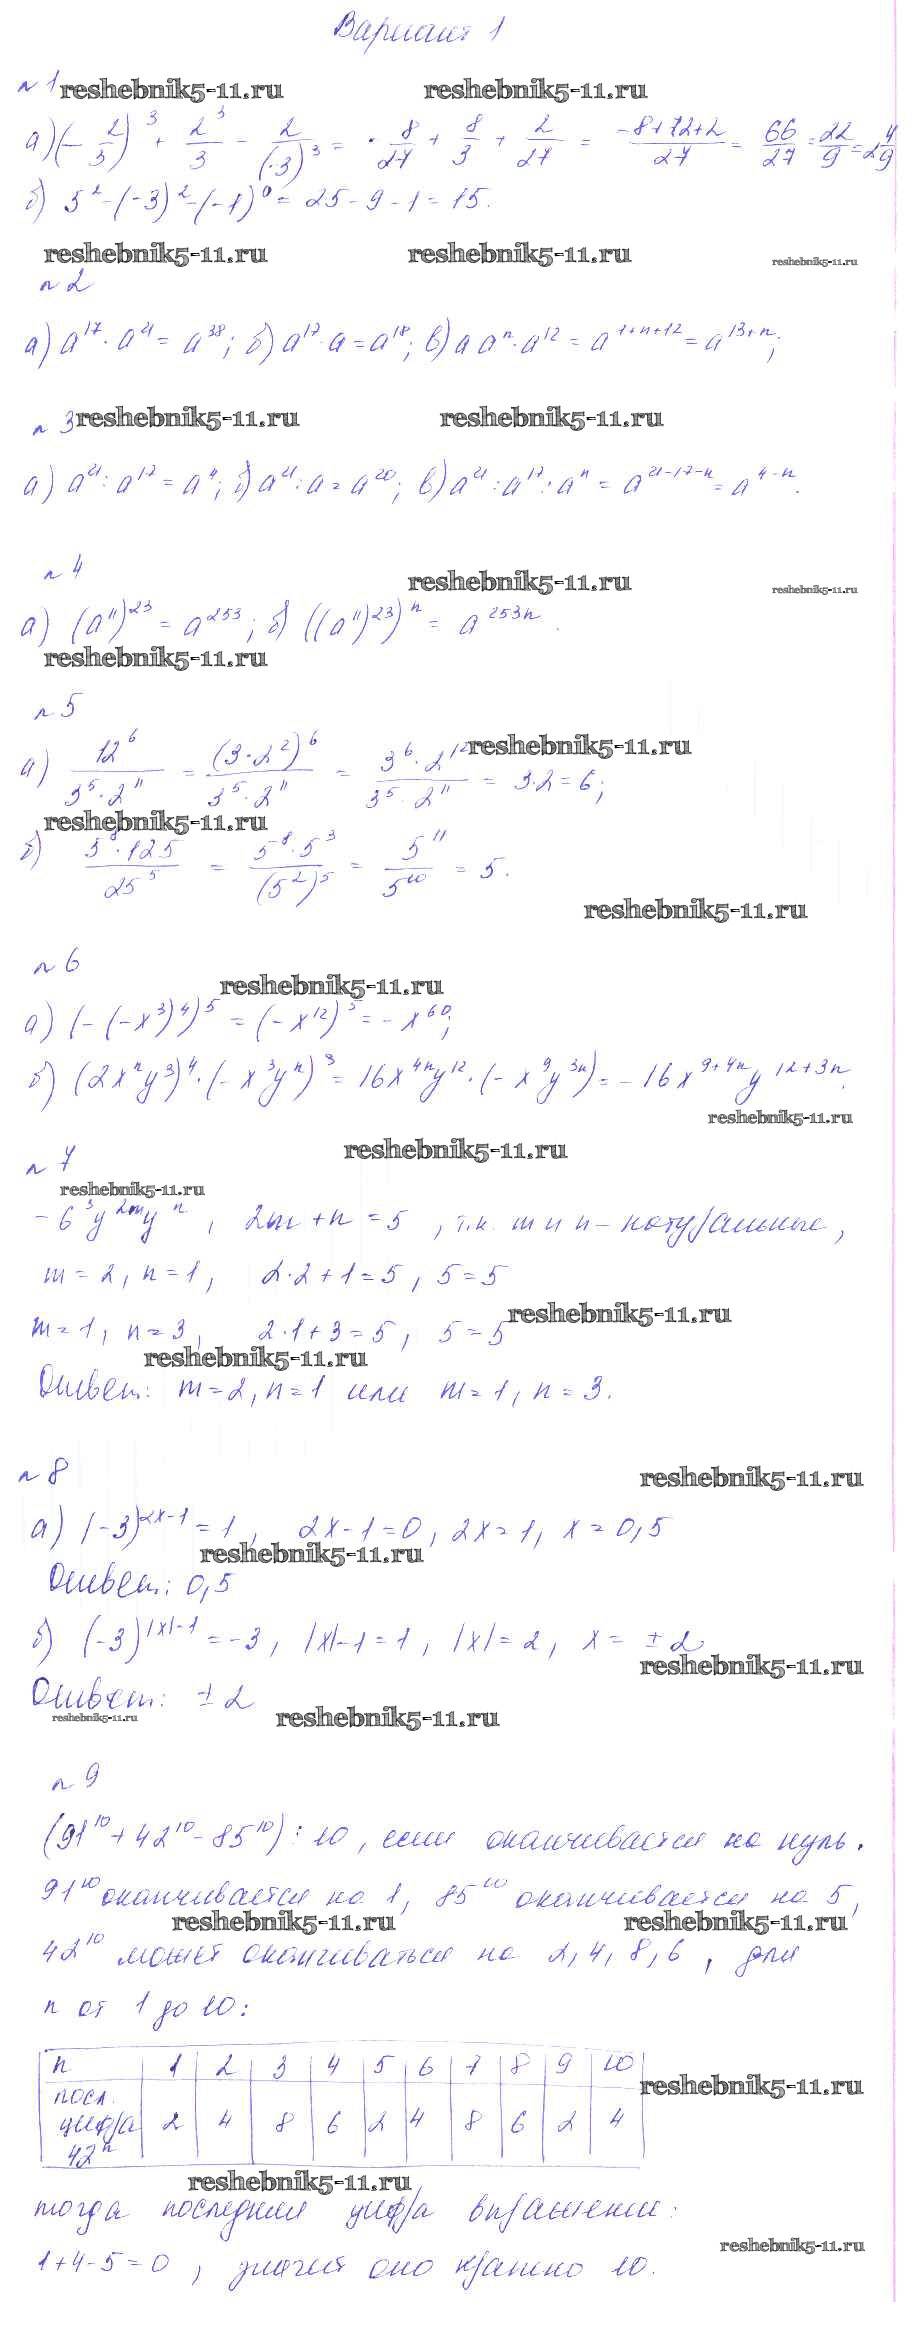 Вариант 1
№1 reshebnik5-11.ru reshebnik5-11.ru
а) (-2/3)^3 + 2^3/3 - 2/(-3)^3 = -8/27 + 8/3 + 2/27 = (-8+72+2)/27 = 66/27 = 22/9 = 2 4/9
б) 5^2 - (-3)^2 - (-1)^0 = 25 - 9 - 1 = 15.
reshebnik5-11.ru reshebnik5-11.ru reshebnik5-11.ru
№2
а) a^17 · a^21 = a^38; б) a^17 · a = a^18; в) a a^n · a^12 = a^(1+n+12) = a^(13+n);
№3 reshebnik5-11.ru reshebnik5-11.ru
а) a^21 : a^17 = a^4; б) a^21 : a = a^20; в) a^21 : a^17 : a^n = a^(21-17-n) = a^(4-n).
№4
reshebnik5-11.ru reshebnik5-11.ru
а) (a^11)^23 = a^253; б) ((a^11)^23)^n = a^(253n).
reshebnik5-11.ru
№5
reshebnik5-11.ru
а) 12^6/(3^5 · 2^11) = (3·2^2)^6/(3^5 · 2^11) = (3^6 · 2^12)/(3^5 · 2^11) = 3·2 = 6;
reshebnik5-11.ru
б) (5^8 · 125)/25^5 = (5^8 · 5^3)/(5^2)^5 = 5^11/5^10 = 5.
reshebnik5-11.ru
№6
reshebnik5-11.ru
а) (-(-x^3)^4)^5 = (-x^12)^5 = -x^60;
б) (2x^n y^3)^4 · (-x^3 y^n)^3 = 16x^(4n) y^12 · (-x^9 y^(3n)) = -16x^(9+4n) y^(12+3n).
reshebnik5-11.ru
reshebnik5-11.ru
№7
reshebnik5-11.ru
-6^3 y^(2m) y^n, 2m + n = 5, т.к. m и n - натуральные,
m = 2, n = 1, 2·2 + 1 = 5, 5 = 5
reshebnik5-11.ru
m = 1, n = 3, 2·1 + 3 = 5, 5 = 5
reshebnik5-11.ru
Ответ: m = 2, n = 1 или m = 1, n = 3.
№8
reshebnik5-11.ru
а) (-3)^(2x-1) = 1, 2x - 1 = 0, 2x = 1, x = 0,5
reshebnik5-11.ru
Ответ: 0,5
б) (-3)^(|x|-1) = -3, |x| - 1 = 1, |x| = 2, x = ±2
reshebnik5-11.ru
Ответ: ±2
reshebnik5-11.ru reshebnik5-11.ru
№9
(91^10 + 42^10 - 85^10) ⋮ 10, если оканчивается на нуль.
91^10 оканчивается на 1, 85^10 оканчивается на 5,
reshebnik5-11.ru reshebnik5-11.ru
42^10 может оканчиваться на 2, 4, 8, 6, для
n от 1 до 10:
n 1 2 3 4 5 6 7 8 9 10
reshebnik5-11.ru
посл. цифра 42^n 2 4 8 6 2 4 8 6 2 4
reshebnik5-11.ru
тогда последняя цифра выражения:
reshebnik5-11.ru
1+4-5 = 0, значит оно кратно 10.